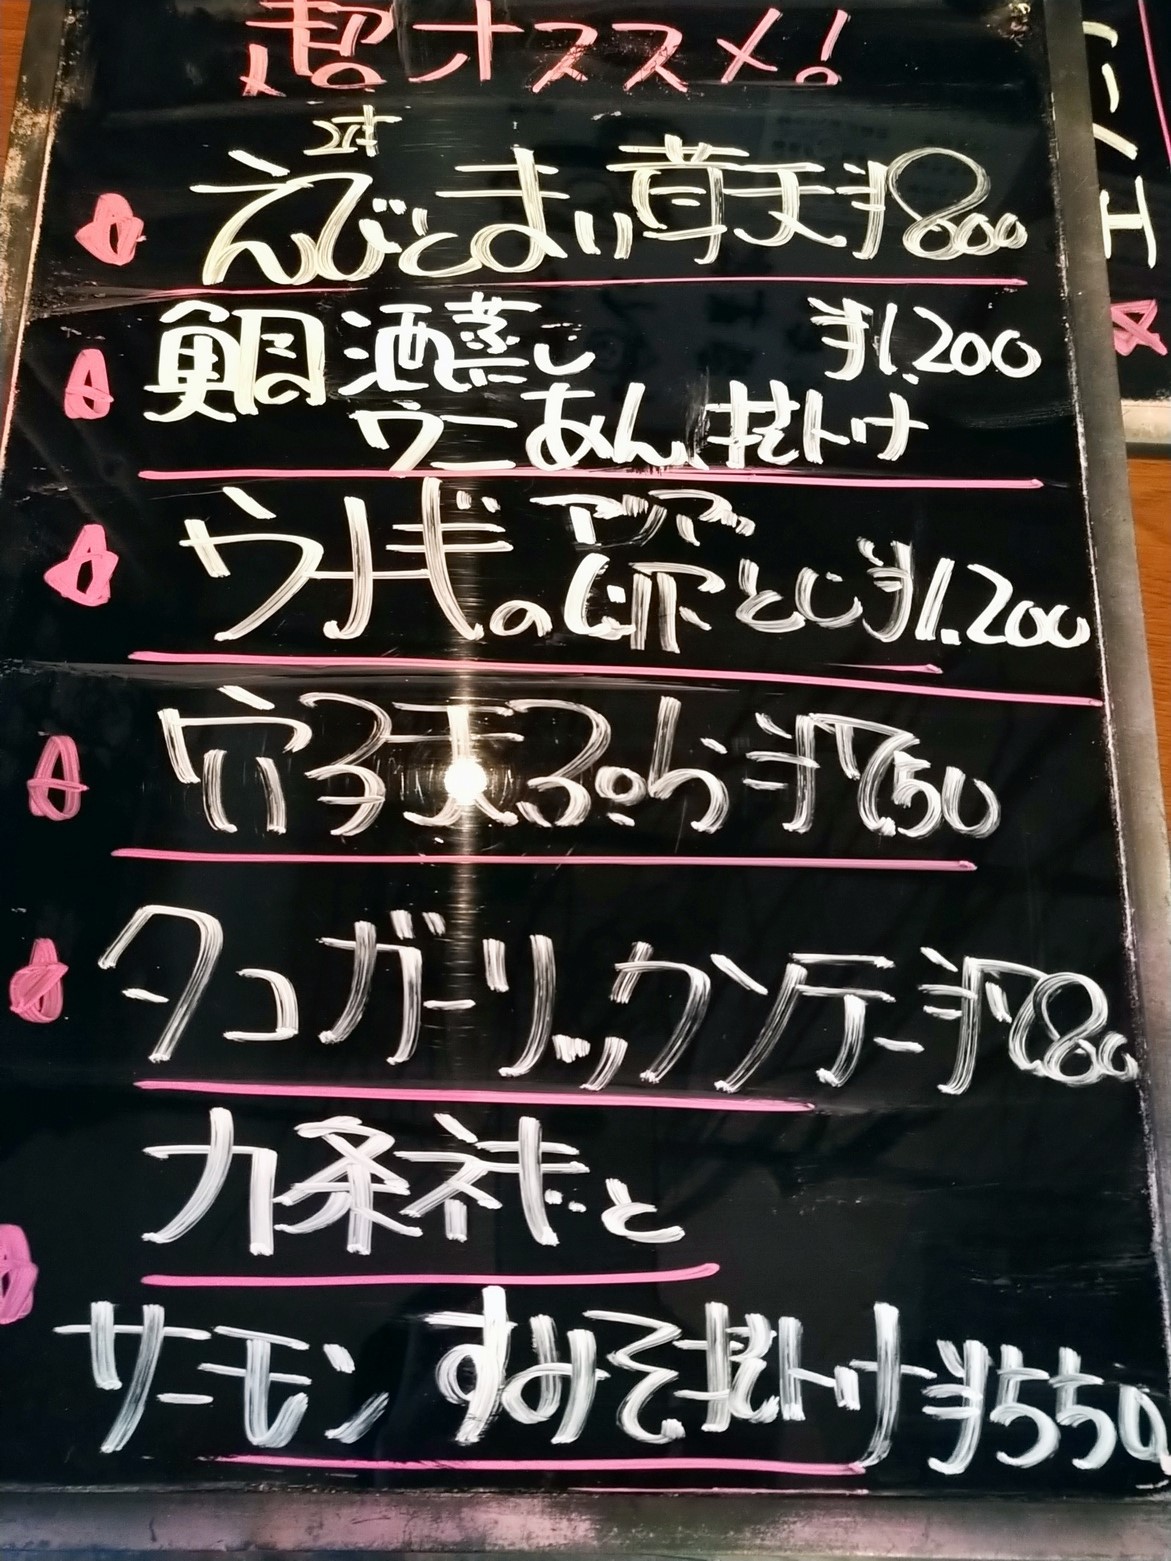 超オススメ!
2本
えびとまい茸天¥800
鯛酒蒸し ¥1.200
ウニあん掛け
アツアツ
ウナギの卵とじ¥1.200
穴子天ぷら¥750
タコガーリックソテー¥780
九条ネギと
サーモン すみそ掛け¥550